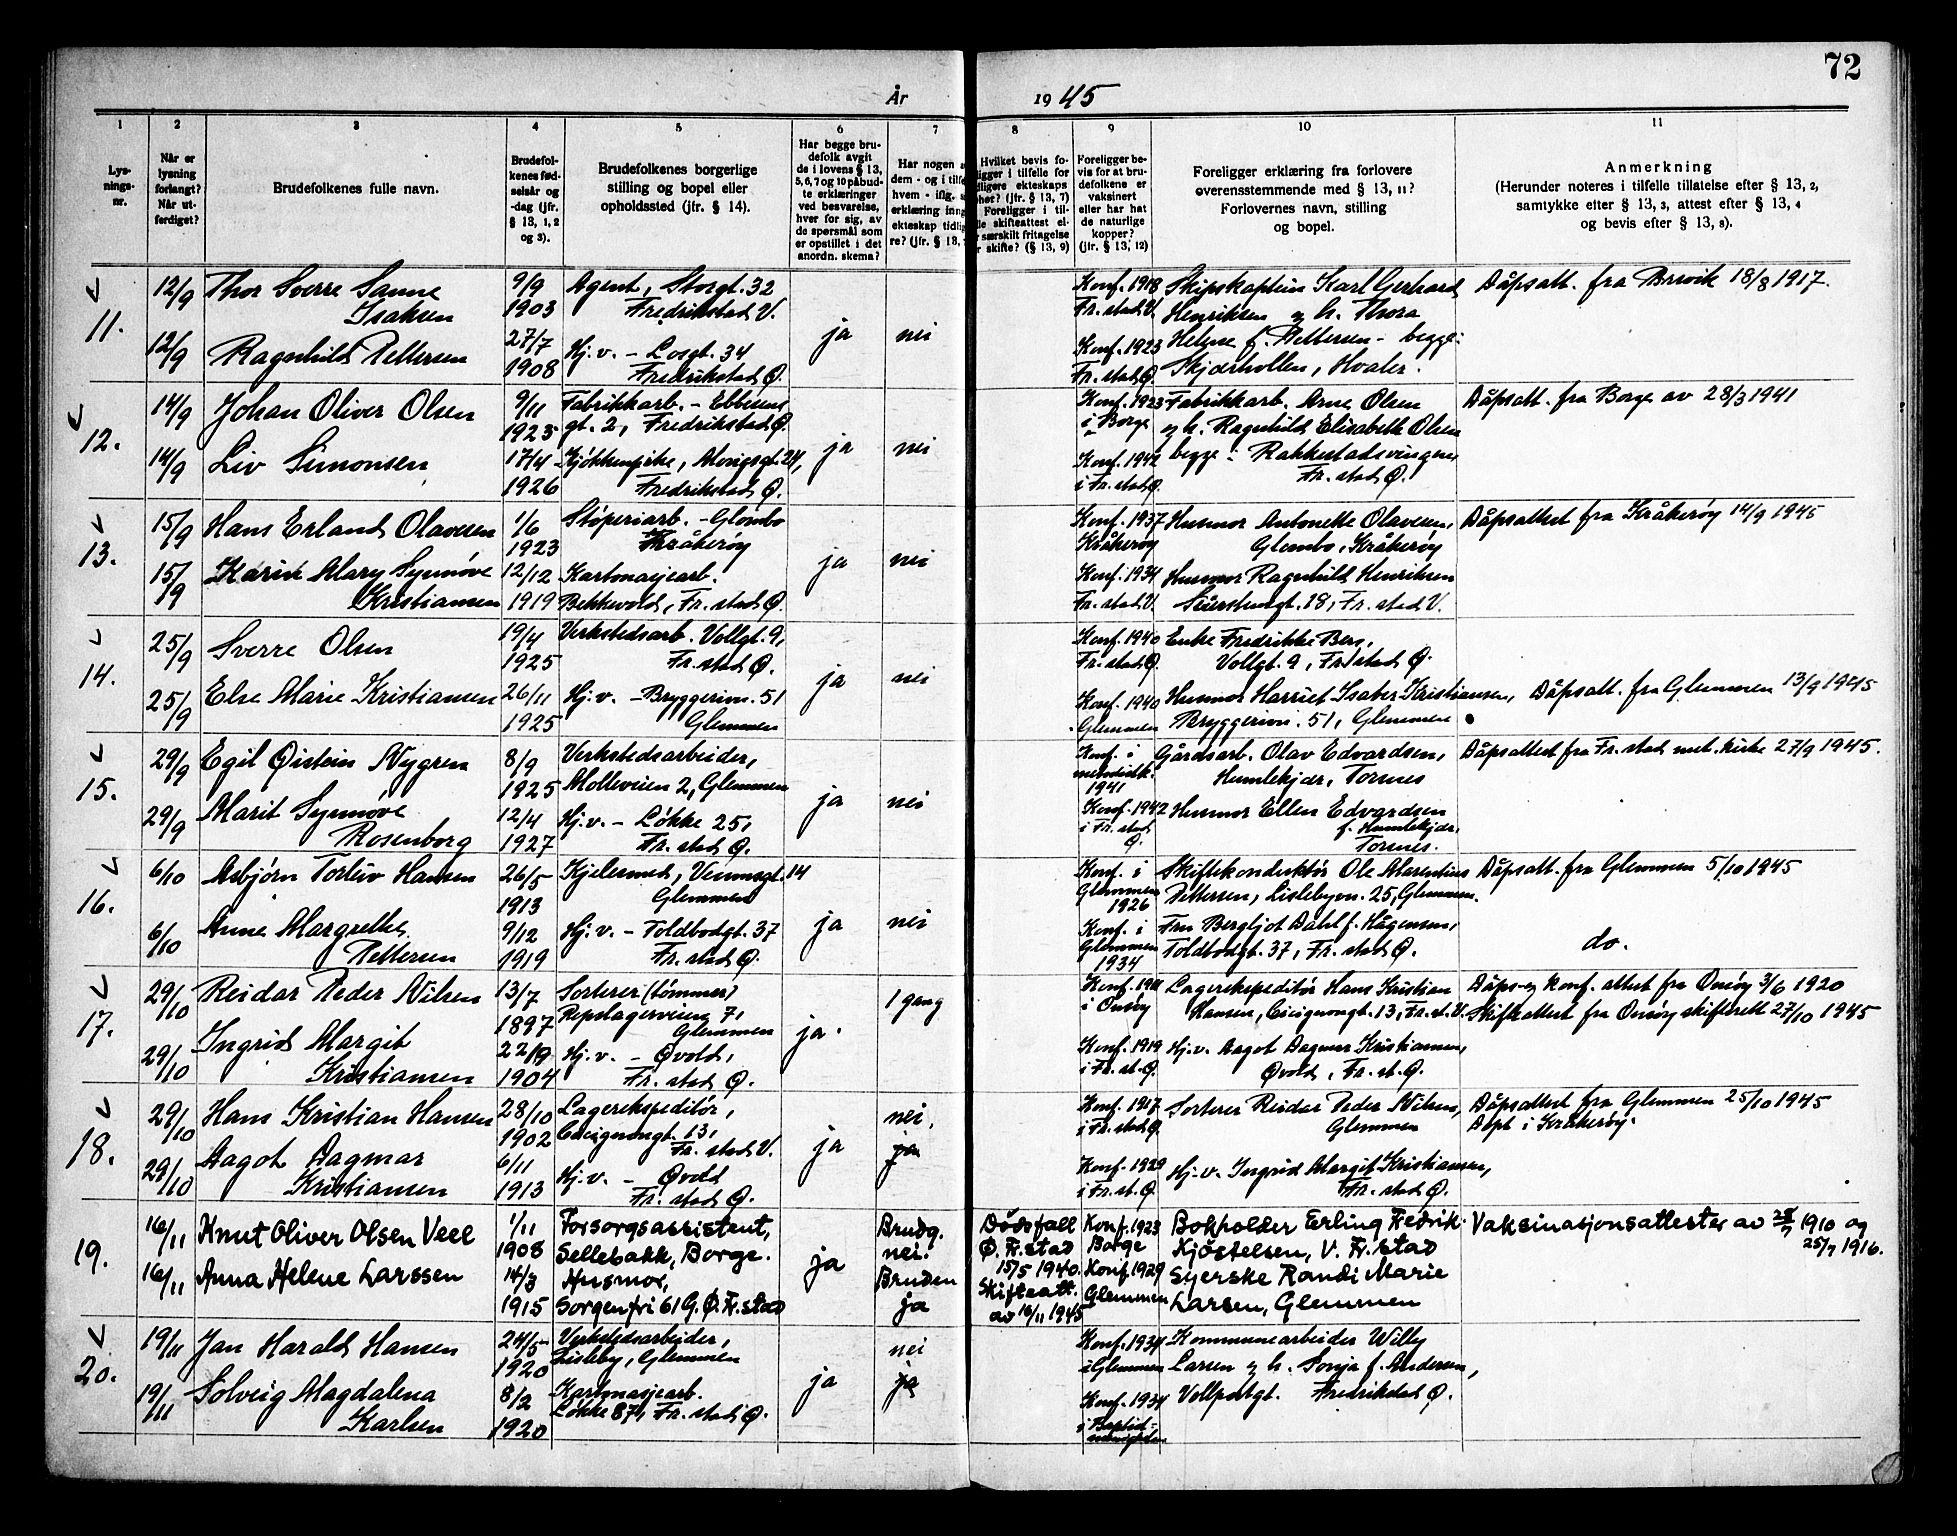 72
År 1945
1 2 3 4 5 6 7 8 9 10 11
Lys-
nings-
nr.
Når er
lysning
forlangt?
Når ut-
ferdiget?
Brudefolkenes fulle navn.
Brudefol-
kenes fød-
selsår og
-dag (jfr.
§ 13, 1, 2
og 3).
Brudefolkenes borgerlige
stilling og bopel eller
opholdssted (jfr. § 14).
Har begge bru-
defolk avgit
de i lovens § 13,
5, 6, 7 og 10 påbud-
te erklæringer
ved besvarelse,
hver for sig, av
de spørsmål som
er opstillet i det
anordn. skema?
Har nogen a
dem - og i tilfe
hvem - iflg.
erklæring inng
ekteskap tidlig
re? (jfr. § 13,
Hvilket bevis fo-
ligger i tilfelle for
dligere ekteskaps
het? (jfr. § 13, 7)
Foreligger i til-
le skifteattest el-
r særskilt fritagelse
r skifte? (§ 13, 9)
Foreligger be-
vis for at bru-
defolkene er
vaksinert
eller har hat
de naturlige
kopper?
(jfr. § 13, 12)
Foreligger erklæring fra forlovere
overensstemmende med § 13, 11?
Forlovernes navn, stilling
og bopel.
Anmerkning
(Herunder noteres i tilfelle tillatelse efter § 13, 2,
samtykke efter § 13, 3, attest efter § 13, 4
og bevis efter § 13, 8).
11.
12/9 Thor Sverre Sanne
Isaksen
9/9
1903
Agent, Storgt. 32
Fredrikstad V.
12/9 Ragnhild Pettersen
27/7
1908
Hj.v. – Losgt. 34
Fredrikstad Ø.
ja nei
Konf. 1918
Fr.stad V.
Konf. 1923
Fr. stad Ø.
Skipskaptein Karl Gerhard
Henriksen og h. Thora
Helene f. Pettersen – begge:
Skjærhollen, Hvaler.
Dåpsatt. fra Brevik 18/8 1917.
12.
14/9 Johan Oliver Olsen
9/11
1923
Fabrikkarb. –
gt. 2, Fredrikstad Ø.
14/9 Liv Simonsen
17/4
1926
Kjøkkenpike, 24,
Fredrikstad Ø.
ja nei
Konf. 1923
i Borge
Konf. 1942
i Fr. stad Ø.
Fabrikkarb. Arne Olsen
og h. Ragnhild Elisabeth Olsen
begge: Rakkestadsvingen,
Fr. stad Ø.
Dåpsatt. fra Borge av 28/3 1941
13.
15/9 Hans Erland Olavesen
1/6
1923
Støperiarb. – Glombo
Kråkerøy
15/9 Karin Mary Synnøve
Kristiansen
12/12
1919
Kartonasjearb.
Bekkevold, Fr. stad Ø.
ja nei
Konf. 1937
Kråkerøy
Konf. 1934
Fr. stad V.
Husmor Antonette Olavesen,
Glombo, Kråkerøy
Husmor Ragnhild Henriksen
18, Fr. stad V.
Dåpsattest fra Kråkerøy 14/9 1945
14.
25/9 Sverre Olsen
19/4
1925
Verkstedsarb. Vollgt. 9,
Fr. stad Ø.
25/9 Else Marie Kristiansen
26/11
1925
Hj.v. – Bryggerivn. 51
Glemmen
ja nei
Konf. 1940
Fr. stad Ø.
Konf. 1940
Glemmen
Enke Fredrikke Berg,
Vollgt. 9, Fr. stad Ø.
Husmor Harriet Kristiansen,
Bryggerivn. 51, Glemmen
Dåpsatt. fra Glemmen 13/9 1945
15.
29/9 Egil Øistein Nygren
8/9
1925
Verkstedsarbeider,
Molleveien 2, Glemmen
29/9 Marit Synnøve
Rosenborg
12/4
1927
Hj.v. – Løkke 25,
Fr. stad Ø.
ja nei
Konf. i
metodistk.
1941
Konf. 1942
i Fr. stad
Ø.
Gårdsarb. Olav Edvardsen,
Humlekjær, Torsnes
Husmor Ellen Edvardsen
f. Humlekjær,
Torsnes.
Dåpsattest fra Fr. stad met. kirke 27/9 1945.
16.
6/10 Asbjørn Torleiv Hansen
26/5
1913
Kjelesmed, Vennsgt. 14
Glemmen
6/10 Anne Margrethe
Pettersen
9/12
1919
Hj. v. – Toldbodgt. 37
Fr. stad Ø.
ja nei
Konf. i
Glemmen
1926
Konf. i
Glemmen
1934
Skiftekonduktør Ole Marentius
Pettersen, Lislebyvn. 25, Glemmen.
Fru Bergljot Dahl f. Hågensen,
Toldbodgt. 37, Fr. stad Ø.
Dåpsatt. fra Glemmen 5/10 1945
do.
17.
29/10 Reidar Peder Nilsen
13/7
1897
Sorterer (tømmer)
Repslagerveien 7,
Glemmen
29/10 Ingrid Margit
Kristiansen
22/9
1904
Hj. v. – Øvold,
Fr. stad Ø.
ja. 1 gang
Konf. 1911
i Onsøy
Konf. 1919
i Fr. st. Ø.
Lagerekspeditør Hans Kristian
Hansen, Cicignongt. 13, Fr. st. V.
Hj. v. Aagot Dagmar Kristiansen,
Øvold, Fr. st. Ø.
Dåps- og konf. attest fra Onsøy 3/6 1920
Skifteattest fra Onsøy skifterett 27/10 1945
18.
29/10 Hans Kristian Hansen
28/10
1902
Lagerekspeditør,
Cicignongt. 13,
Fr. stad V.
29/10 Aagot Dagmar
Kristiansen
6/11
1913
Hj. v. – Øvold
Fr. stad Ø.
ja nei,
ja
Konf. 1917
i Fr. stad Ø.
Konf. 1929
i Fr. st. Ø.
Sorterer Reidar Peder Nilsen,
Glemmen
Hj. v. Ingrid Margit Kristiansen,
Fr. stad Ø.
Dåpsattest fra Glemmen 25/10 1945
Døpt i Kråkerøy.
19.
16/11 Knut Oliver Olsen Veel
1/11
1908
Forsorgsassistent,
Sellebakk, Borge.
16/11 Anna Helene Larssen
14/3
1915
Husmor,
Sorgenfri 61 G. Ø. Fr. stad
ja
Brudg.
nei.
Bruden
ja
Dödsfall
Ø. Fr. stad
15/5 1940.
Skifteatt.
av 16/11 1945
Konf. 1923
Borge
Konf. 1929
Glemmen
Bokholder Erling Fredrik
Kjöstelsen, V. Fr. stad
Syerske Randi Marie
Larsen, Glemmen
Vaksinasjonsattester av 28/7 1910 og
25/7 1916.
20.
19/11 Jan Harald Hansen
24/5
1920
Verkstedsarbeider,
Lisleby, Glemmen
19/11 Solveig Magdalena
Karlsen
8/2
1920
Kartonasjearb.
Løkke 87, Fr. stad Ø.
ja nei
ja
Konf. 1934
i Glemmen
Konf. 1934
i Baptist-
menigheten
Kommunearbeider Willy
Larsen og h. Sonja f. Andersen,
Vollportgt. Fredrikstad Ø.